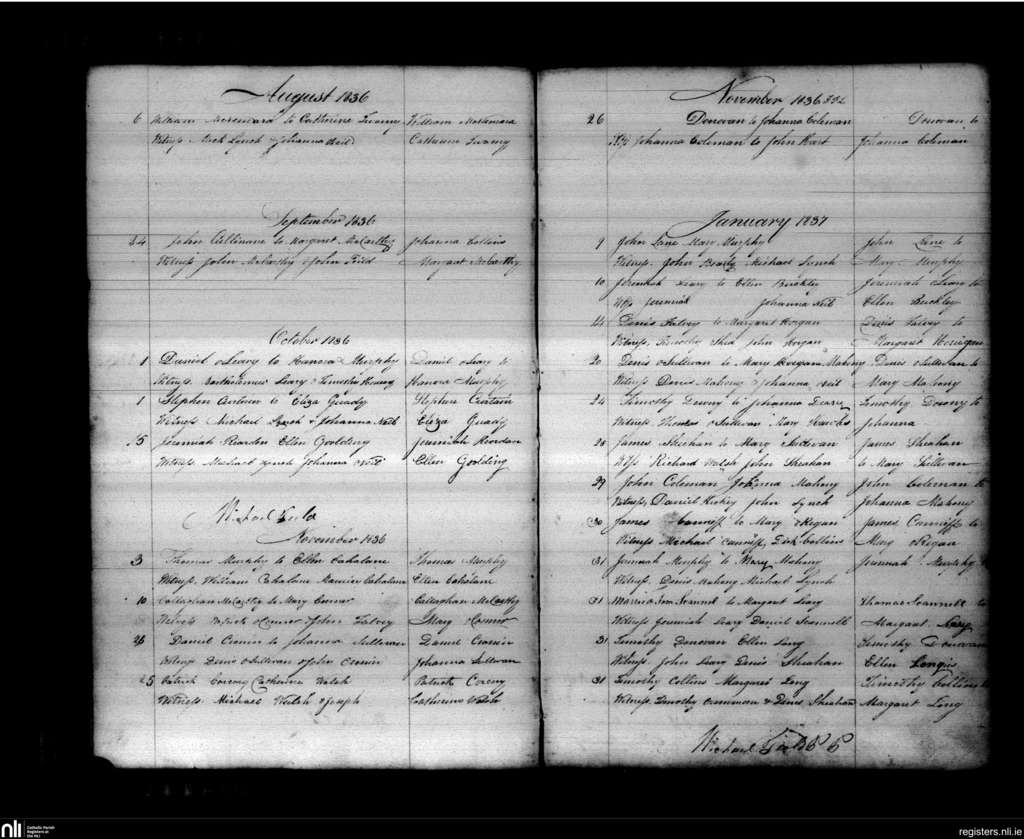 August 1836
6 William McNamara to Catherine Twomy William McNamara
Witness Mick Lynch & Johanna Neil Catherine Twomy
September 1836
24 John Cullinane to Margaret McCarthy Johanna Collins
Witness John McCarthy & John Margaret McCarthy
October 1836
1 Daniel Leary to Hanora Murphy Daniel Leary to
Witness Bartholomew Leary & Timothy Hanora Murphy
1 Stephen to Eliza Quady Stephen Curtain
Witness Michael Lynch & Johanna Neill Eliza Quady
15 Jeremiah Reardon Ellen Goolding Jeremiah Reordan
Witness Michael Lynch Johanna Neil Ellen Goolding
Michael
November 1836
3 Thomas Murphy to Ellen Cahalane Thomas Murphy
Witness William Cahalane Maurice Cahalane Ellen Cahalane
10 Callaghan McCarthy to Mary Connor Callaghan McCarthy
Witness Patrick Connor John Falvey Mary Connor
Daniel Cronin to Johanna Sullivan Daniel Cronin
Witness Denis Sullivan & John Cronin Johanna Sullivan
25 Patrick Coveny Catherine Walsh Patrick Coveny
Witness Michael Welsh & Joseph Catherine Walsh
November 1836
26 Donovan to Johanna Coleman Donovan to
Johanna Coleman to John Hart Johanna Coleman
January 1837
9 John Lane Mary Murphy John Lane to
Witness John Brady Michael Lynch Mary Murphy
10 Jeremiah Leary to Ellen Buckley Jeremiah Leary to
Jeremiah Johanna Neil Ellen Buckley
14 Denis Falvey to Margaret Horgan Denis Falvey to
Witness Timothy Shea John Horgan Margaret
20 Denis Sullivan to Mary Mahony Denis Sullivan to
Witness Denis Mahony & Johanna Neil Mary Mahony
24 Timothy to Johanna Leary Timothy to
Witness Thomas Sullivan Mary Johanna
28 James Sheehan to Mary Sullivan James Sheahan
Richard Walsh John Sheahan to Mary Sullivan
29 John Coleman Johanna Mahony John Coleman to
Witness Daniel Hickey John Lynch Johanna Mahony
30 James Canniff to Mary Regan James Canniff to
Witness Michael Canniff Dick Collins Mary Regan
31 Jeremiah Murphy to Mary Mahony Jeremiah Murphy
Witness Denis Mahony Michael Lynch
31 Scannel to Margaret Leary Thomas Scannell to
Witness Jeremiah Leary Daniel Scannell Margaret Leary
31 Timothy Donovan Ellen Long Timothy Donovan
Witness John Leary Denis Sheahan Ellen
31 Timothy Collins Margaret Long Timothy Collins
Witness Timothy & Denis Sheahan Margaret Long
Michael
nli
Catholic Parish
Registers at
the NLI
registers.nli.ie